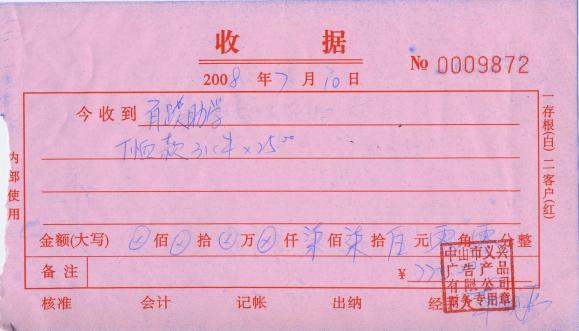 收 据
No 0009872
2008 年 7 月 10 日
今收到 助学
T恤款 31件×25.00
金额(大写) 佰 拾 万 仟 柒 佰 柒 拾 伍 元 零 角 零 分 整
备 注 ¥ 775
中山市义兴
广告产品
有限公司
财务专用章
核准 会计 记帐 出纳 经手人
一存根(白) 二客户(红)
内部使用